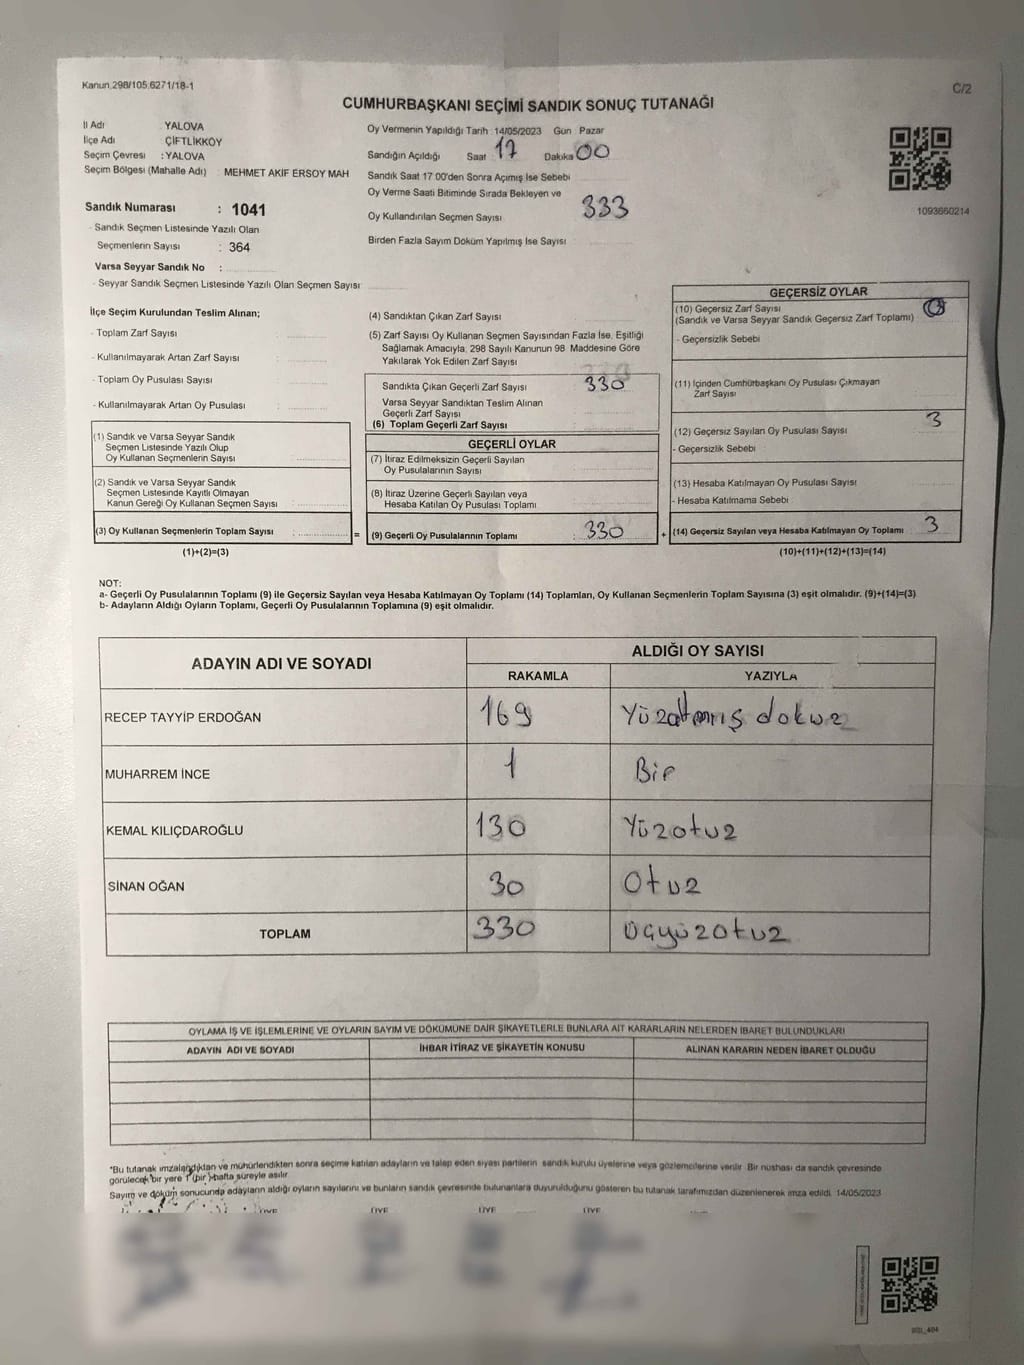 Kanun 298/105,6271/18-1
C/2
CUMHURBAŞKANI SEÇİMİ SANDIK SONUÇ TUTANAĞI
İl Adı YALOVA
İlçe Adı ÇİFTLİKKÖY
Seçim Çevresi : YALOVA
Seçim Bölgesi (Mahalle Adı) : MEHMET AKİF ERSOY MAH
Oy Vermenin Yapıldığı Tarih 14/05/2023 Gün Pazar
Sandığın Açıldığı Saat 17 Dakika 00
Sandık Saat 17 00'den Sonra Açımış İse Sebebi
Oy Verme Saati Bitiminde Sırada Bekleyen ve
Oy Kullandırılan Seçmen Sayısı 333
Birden Fazla Sayım Döküm Yapılmış İse Sayısı
1093660214
Sandık Numarası : 1041
- Sandık Seçmen Listesinde Yazılı Olan
Seçmenlerin Sayısı : 364
Varsa Seyyar Sandık No :
- Seyyar Sandık Seçmen Listesinde Yazılı Olan Seçmen Sayısı
İlçe Seçim Kurulundan Teslim Alınan;
- Toplam Zarf Sayısı :
- Kullanılmayarak Artan Zarf Sayısı :
- Toplam Oy Pusulası Sayısı :
- Kullanılmayarak Artan Oy Pusulası :
(1) Sandık ve Varsa Seyyar Sandık
Seçmen Listesinde Yazılı Olup
Oy Kullanan Seçmenlerin Sayısı
(2) Sandık ve Varsa Seyyar Sandık
Seçmen Listesinde Kayıtlı Olmayan
Kanun Gereği Oy Kullanan Seçmen Sayısı
(3) Oy Kullanan Seçmenlerin Toplam Sayısı :
=
(1)+(2)=(3)
(4) Sandıktan Çıkan Zarf Sayısı
(5) Zarf Sayısı Oy Kullanan Seçmen Sayısından Fazla İse, Eşitliği
Sağlamak Amacıyla, 298 Sayılı Kanunun 98 Maddesine Göre
Yakılarak Yok Edilen Zarf Sayısı
Sandıkta Çıkan Geçerli Zarf Sayısı 330
Varsa Seyyar Sandıktan Teslim Alınan
Geçerli Zarf Sayısı
(6) Toplam Geçerli Zarf Sayısı
GEÇERLİ OYLAR
(7) İtiraz Edilmeksizin Geçerli Sayılan
Oy Pusulalarının Sayısı
(8) İtiraz Üzerine Geçerli Sayılan veya
Hesaba Katılan Oy Pusulası Toplamı
(9) Geçerli Oy Pusulalarının Toplamı : 330
+
GEÇERSİZ OYLAR
(10) Geçersiz Zarf Sayısı
(Sandık ve Varsa Seyyar Sandık Geçersiz Zarf Toplamı)
- Geçersizlik Sebebi
(11) İçinden Cumhurbaşkanı Oy Pusulası Çıkmayan
Zarf Sayısı
(12) Geçersiz Sayılan Oy Pusulası Sayısı 3
- Geçersizlik Sebebi
(13) Hesaba Katılmayan Oy Pusulası Sayısı
- Hesaba Katılmama Sebebi
(14) Geçersiz Sayılan veya Hesaba Katılmayan Oy Toplamı 3
(10)+(11)+(12)+(13)=(14)
NOT:
a- Geçerli Oy Pusulalarının Toplamı (9) ile Geçersiz Sayılan veya Hesaba Katılmayan Oy Toplamı (14) Toplamları, Oy Kullanan Seçmenlerin Toplam Sayısına (3) eşit olmalıdır. (9)+(14)=(3)
b- Adayların Aldığı Oyların Toplamı, Geçerli Oy Pusulalarının Toplamına (9) eşit olmalıdır.
ADAYIN ADI VE SOYADI
ALDIĞI OY SAYISI
RAKAMLA YAZIYLA
RECEP TAYYİP ERDOĞAN 169 Yüzatmış dokuz
MUHARREM İNCE 1 Bir
KEMAL KILIÇDAROĞLU 130 Yüzotuz
SİNAN OĞAN 30 Otuz
TOPLAM 330 Üçyüzotuz
OYLAMA İŞ VE İŞLEMLERİNE VE OYLARIN SAYIM VE DÖKÜMÜNE DAİR ŞİKAYETLERLE BUNLARA AİT KARARLARIN NELERDEN İBARET BULUNDUKLARI
ADAYIN ADI VE SOYADI İHBAR İTİRAZ VE ŞİKAYETİN KONUSU ALINAN KARARIN NEDEN İBARET OLDUĞU
*Bu tutanak imzalandıktan ve mühürlendikten sonra seçime katılan adayların ve talep eden siyasi partilerin sandık kurulu üyelerine veya gözlemcilerine verilir Bir nüshası da sandık çevresinde
görülecek bir yere 1 (bir) hafta süreyle asılır
Sayım ve döküm sonucunda adayların aldığı oyların sayılarını ve bunların sandık çevresinde bulunanlara duyurulduğunu gösteren bu tutanak tarafımızdan düzenlenerek imza edildi 14/05/2023
ÜYE ÜYE ÜYE ÜYE